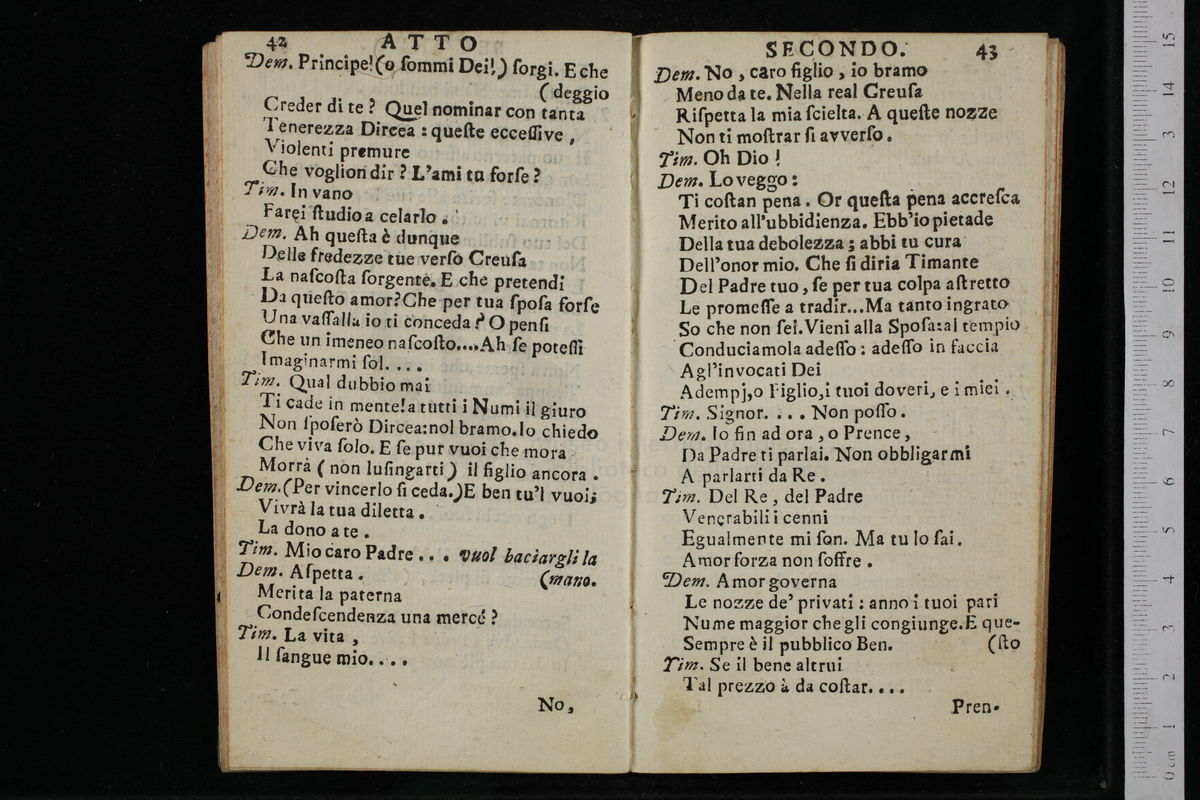 42 ATTO
Dem. Principe! (o ſommi Dei!) ſorgi. E che
(deggio
Creder di te? Quel nominar con tanta
Tenerezza Dircea: queſte ecceſſive,
Violenti premure
Che voglion dir? L'ami tu forſe?
Tim. In vano
Farei ſtudio a celarlo.
Dem. Ah queſta è dunque
Delle fredezze tue verſo Creuſa
La naſcoſta ſorgente. E che pretendi
Da queſto amor? Che per tua ſpoſa forſe
Una vaſſalla io ti conceda? O penſi
Che un imeneo naſcoſto.... Ah ſe poteſſi
Imaginarmi ſol....
Tim. Qual dubbio mai
Ti cade in mente! a tutti i Numi il giuro
Non ſpoſerò Dircea: nol bramo. Io chiedo
Che viva ſolo. E ſe pur vuoi che mora
Morrà (non luſingarti) il figlio ancora.
Dem. (Per vincerlo ſi ceda.) E ben tu'l vuoi;
Vivrà la tua diletta.
La dono a te.
Tim. Mio caro Padre... vuol baciargli la
Dem. Aſpetta. (mano.
Merita la paterna
Condeſcendenza una mercé?
Tim. La vita,
Il ſangue mio....
No,
SECONDO. 43
Dem. No, caro figlio, io bramo
Meno da te. Nella real Creuſa
Riſpetta la mia ſcielta. A queſte nozze
Non ti moſtrar ſi avverſo.
Tim. Oh Dio!
Dem. Lo veggo:
Ti coſtan pena. Or queſta pena accreſca
Merito all'ubbidienza. Ebb'io pietade
Della tua debolezza; abbi tu cura
Dell'onor mio. Che ſi diria Timante
Del Padre tuo, ſe per tua colpa aſtretto
Le promeſſe a tradir... Ma tanto ingrato
So che non ſei. Vieni alla Spoſa: al tempio
Conduciamola adeſſo: adeſſo in faccia
Agl'invocati Dei
Adempj, o Figlio, i tuoi doveri, e i miei.
Tim. Signor.... Non poſſo.
Dem. Io fin ad ora, o Prence,
Da Padre ti parlai. Non obbligarmi
A parlarti da Re.
Tim. Del Re, del Padre
Venerabili i cenni
Egualmente mi ſon. Ma tu lo ſai.
Amor forza non ſoffre.
Dem. Amor governa
Le nozze de' privati: anno i tuoi pari
Nume maggior che gli congiunge. E que-
Sempre è il pubblico Ben. (ſto
Tim. Se il bene altrui
Tal prezzo à da coſtar....
Pren-
0 cm 1 2 3 4 5 6 7 8 9 10 11 12 3 14 15